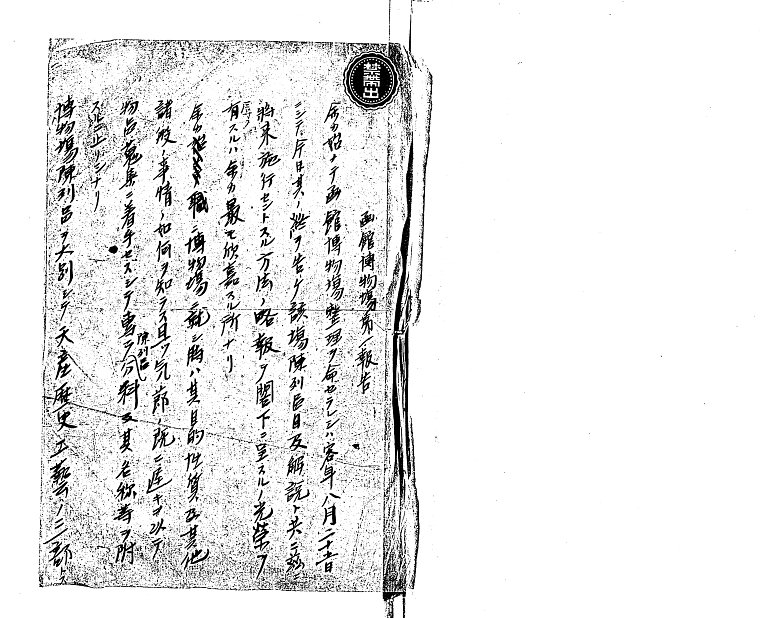 禁帯出
函館博物場第一報告
余カ始メテ函館博物場整理ヲ命セラレシハ客年八月二十五日
ニシテ今日其ノ終ヲ告ケ該場陳列品目及解説ト共ニ茲ニ
将来施行セントスル方法ノ略報ヲ閣下ニ呈スルノ光栄ヲ
有スルハ余カ最モ欣嘉スル所ナリ
余カ始 職ニ博物場ニ就シ時ハ其目的性質及其他
諸般ノ事情ノ如何ヲ知ラス且ツ気節ノ既ニ遅キヲ以テ
物品蒐集ニ着手セスシテ専ラ陳列品分科及其名称等ヲ附
スルニ止リシナリ
博物場陳列品ヲ大別シテ天産歴史工藝ノ三部トス